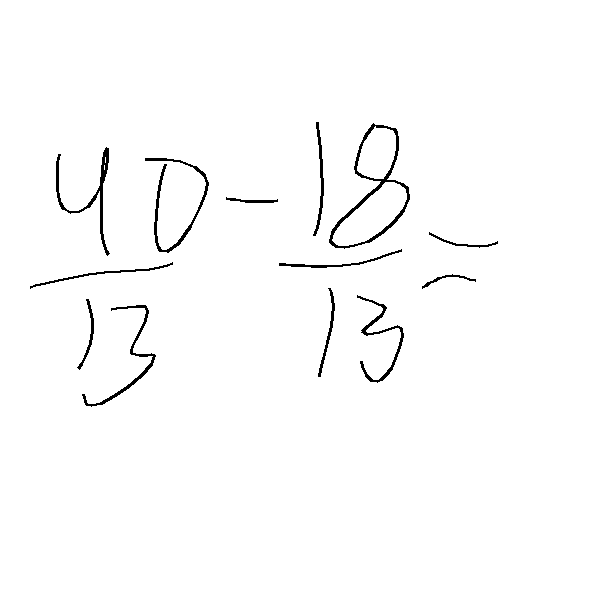 40/13 - 18/13 =